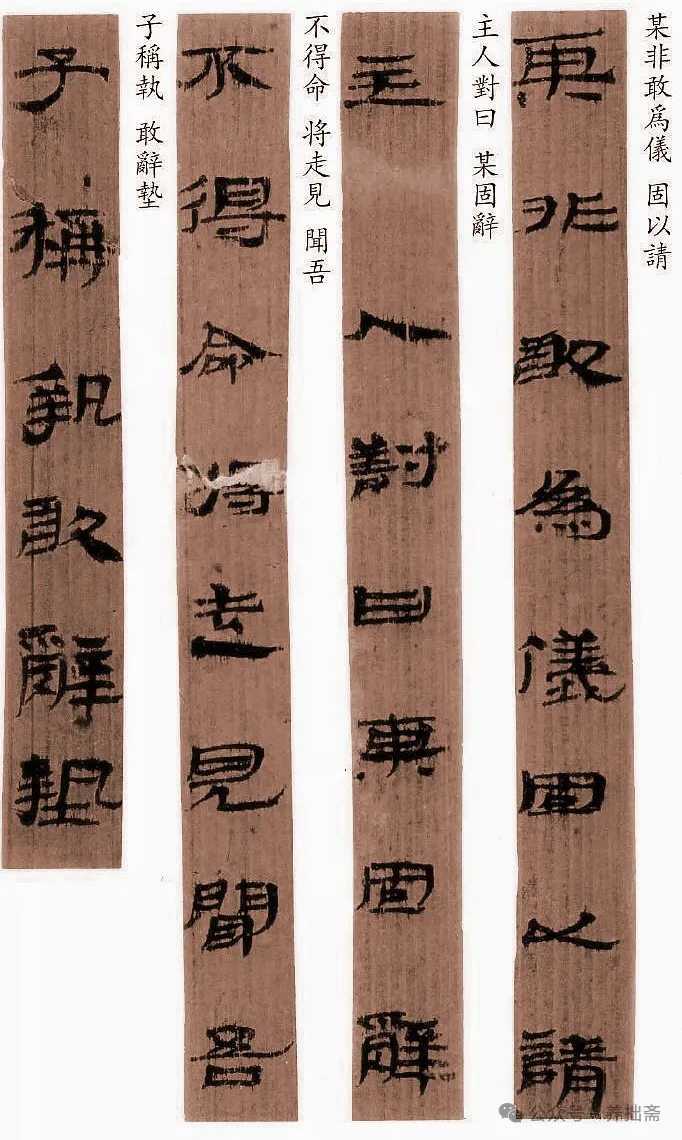 某非敢爲儀 固以請
某非敢為儀固以請
主人對曰 某固辭
主人對曰某固辭
不得命 将走見 聞吾
不得命将走見聞吾
子稱執 敢辭墊
子稱執敢辭墊
公众号·养拙斋